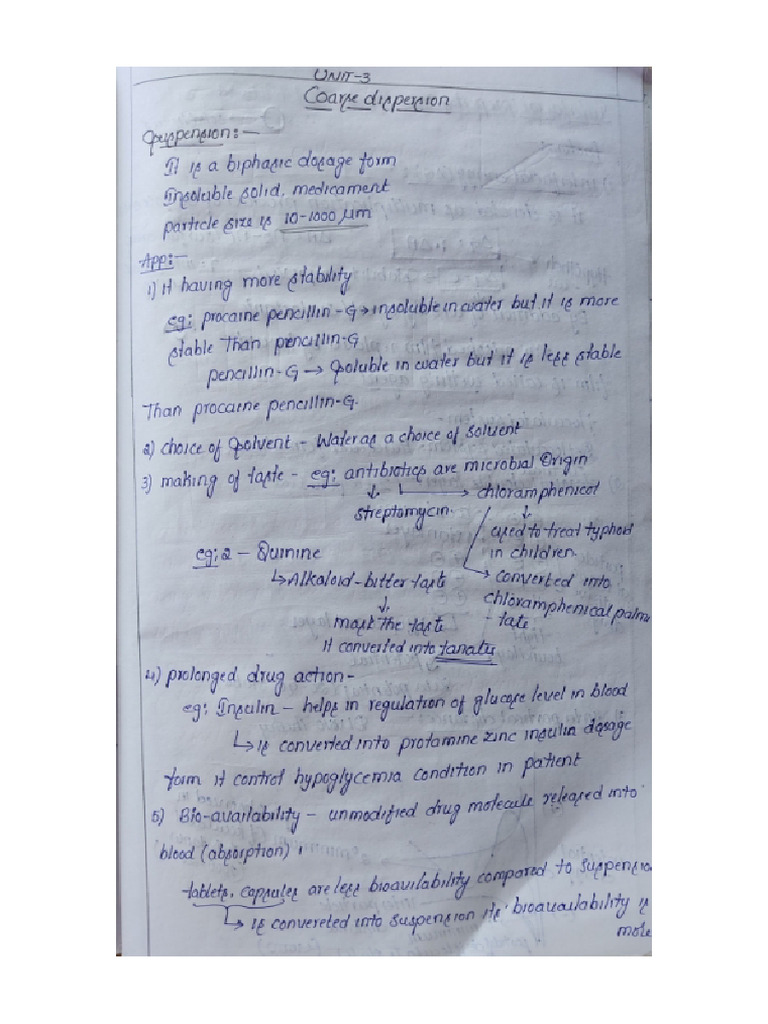 UNIT-3
Coarse dispersion
Suspension:-
It is a biphasic dosage form
Insoluble solid, medicament
particle size is 10-1000 μm
App:-
1) it having more stability
eg: procaine pencillin-G → insoluble in water but it is more
stable Than pencillin-G
pencillin-G → Soluble in water but it is less stable
Than procaine pencillin-G.
2) choice of Solvent - Water as a choice of solvent
3) making of taste - eg: antibiotics are microbial Origin
↓ → chloramphenicol
streptomycin. ↓
used to treat typhoid
in children.
eg:2 - Quinine
↳ Alkaloid-bitter taste → converted into
↓ chloramphenical palmi
mask the taste - tate.
it converted into tanate
4) prolonged drug action -
eg: Insulin - helps in regulation of glucose level in blood
↳ is converted into protamine zinc insulin dosage
form it control hypoglycemia condition in patient
5) Bio-availability - unmodified drug molecule released into
blood (absorption)
tablets, capsules are less bioavilability compared to suspension
↳ is convereted into suspension its bioavailability is
more